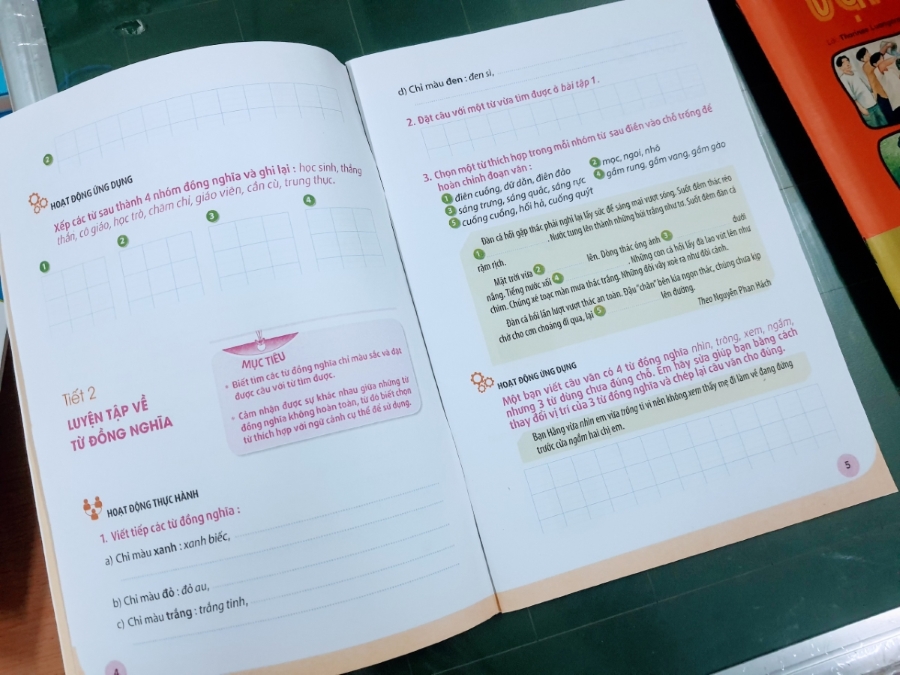 2
HOẠT ĐỘNG ỨNG DỤNG
Xếp các từ sau thành 4 nhóm đồng nghĩa và ghi lại : học sinh, thẳng
thắn, cô giáo, học trò, chăm chỉ, giáo viên, cần cù, trung thực.
1
2
3
4
Tiết 2
LUYỆN TẬP VỀ
TỪ ĐỒNG NGHĨA
MỤC TIÊU
• Biết tìm các từ đồng nghĩa chỉ màu sắc và đặt
được câu với từ tìm được.
• Cảm nhận được sự khác nhau giữa những từ
đồng nghĩa không hoàn toàn, từ đó biết chọn
từ thích hợp với ngữ cảnh cụ thể để sử dụng.
HOẠT ĐỘNG THỰC HÀNH
1. Viết tiếp các từ đồng nghĩa :
a) Chỉ màu xanh : xanh biếc,
b) Chỉ màu đỏ : đỏ au,
c) Chỉ màu trắng : trắng tinh,
4
d) Chỉ màu đen : đen sì,
2. Đặt câu với một từ vừa tìm được ở bài tập 1.
3. Chọn một từ thích hợp trong mỗi nhóm từ sau điền vào chỗ trống để
hoàn chỉnh đoạn văn :
1 điên cuồng, dữ dằn, điên đảo 2 mọc, ngoi, nhô
3 sáng trưng, sáng quắc, sáng rực 4 gầm rung, gầm vang, gầm gào
5 cuống cuồng, hối hả, cuống quýt
Đàn cá hồi gặp thác phải nghỉ lại lấy sức để sáng mai vượt sóng. Suốt đêm thác réo
1 . Nước tung lên thành những búi trắng như tơ. Suốt đêm đàn cá
rậm rịch.
Mặt trời vừa 2 lên. Dòng thác óng ánh 3 dưới
nắng. Tiếng nước xối 4 . Những con cá hồi lấy đà lao vút lên như
chim. Chúng xé toạc màn mưa thác trắng. Những đôi vây xoè ra như đôi cánh.
Đàn cá hồi lần lượt vượt thác an toàn. Đậu "chân" bên kia ngọn thác, chúng chưa kịp
chờ cho cơn choáng đi qua, lại 5 lên đường.
Theo Nguyễn Phan Hách
HOẠT ĐỘNG ỨNG DỤNG
Một bạn viết câu văn có 4 từ đồng nghĩa nhìn, trông, xem, ngắm,
nhưng 3 từ dùng chưa đúng chỗ. Em hãy sửa giúp bạn bằng cách
thay đổi vị trí của 3 từ đồng nghĩa và chép lại câu văn cho đúng.
Bạn Hằng vừa nhìn em vừa trông ti vi nên không xem thấy mẹ đi làm về đang đứng
trước cửa ngắm hai chị em.
5